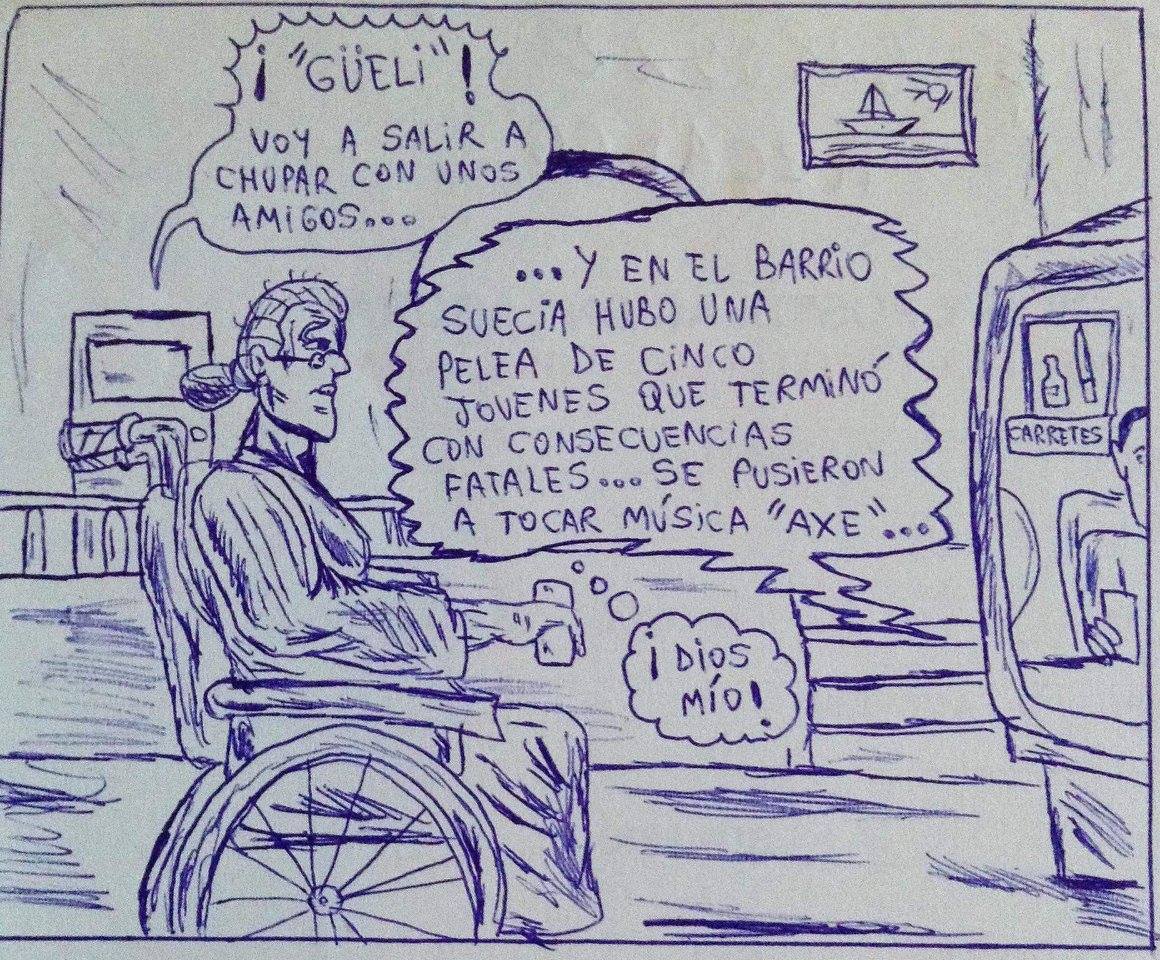 ¡ "GÜELi" !
VOY A SALiR A
CHUPAR CON UNOS
AMiGOS...
...Y EN EL BARRiO
SUECiA HUBO UNA
PELEA DE CiNCO
JOVENES QUE TERMiNÓ
CON CONSECUENCiAS
FATALES... SE PUSiERON
A TOCAR MÚSiCA "AXE"...
CARRETES
¡DiOS
MÍO!